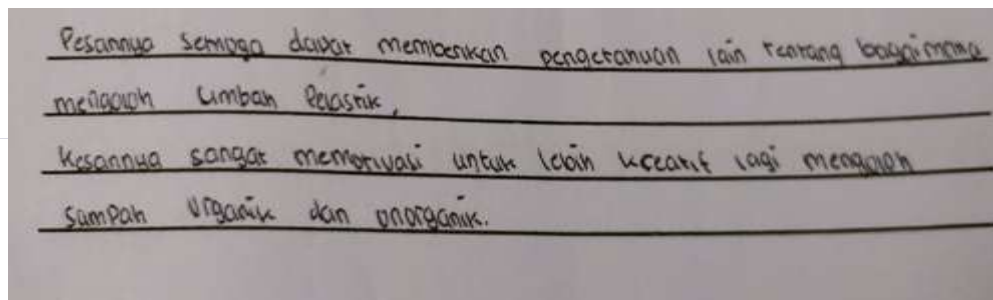 Pesannya semoga dapat memberikan pengetahuan lain tentang bagaimana
mengolah Limbah Pelastik,
Kesannya sangat memotivasi untuk lebih kreatif lagi mengolah
Sampah organik dan anorganik.